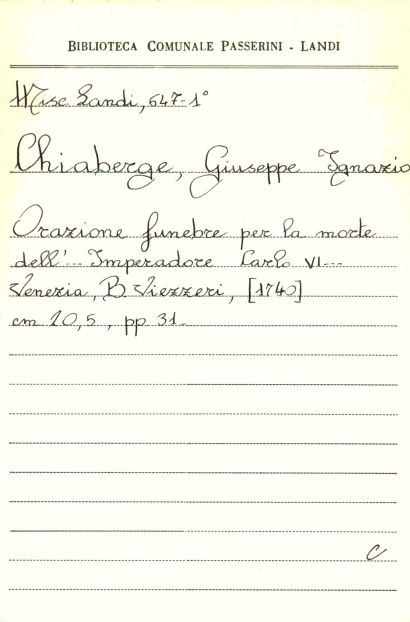 BIBLIOTECA COMUNALE PASSERINI - LANDI
Misc Landi, 647-1°
Chiaberge, Giuseppe Ignazio
Orazione funebre per la morte
dell'... Imperadore Carlo VI...
Venezia, B. Viezzeri, [1740]
cm 20,5, pp 31.
C